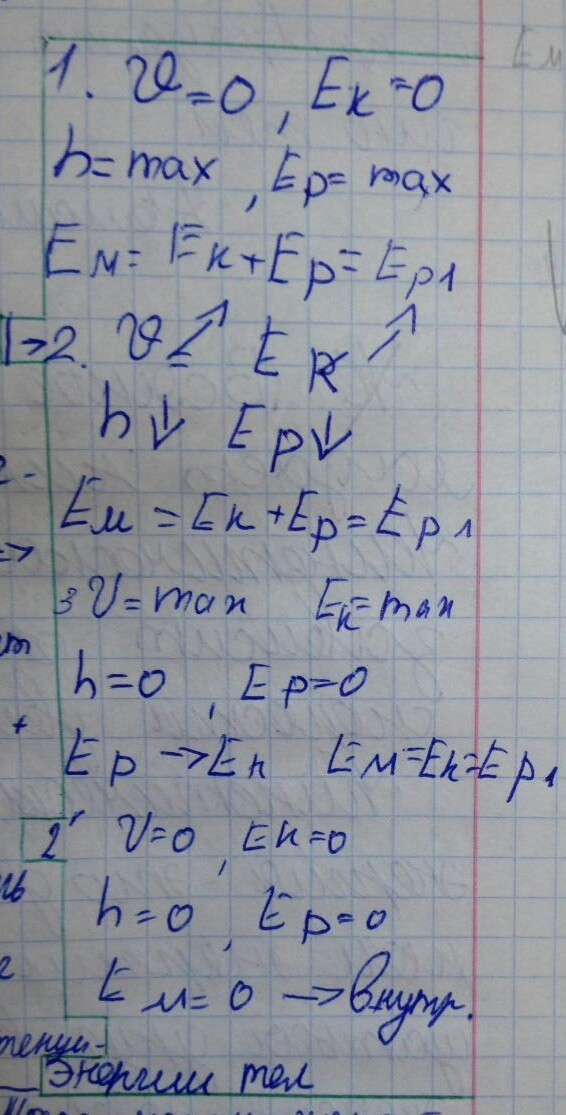 1. υ=0, Eк=0
h=max, Ep=max
Eм=Eк+Ep=Ep1
1→2. υ=↗ Eк↗
h↓ Ep↓
Eм=Eк+Ep=Ep1
3 υ=max Eк=max
h=0, Ep=0
Ep→Eк Eм=Eк=Ep1
2' υ=0, Eк=0
h=0, Ep=0
Eм=0 →внутр.
тенци-
Энергии тел